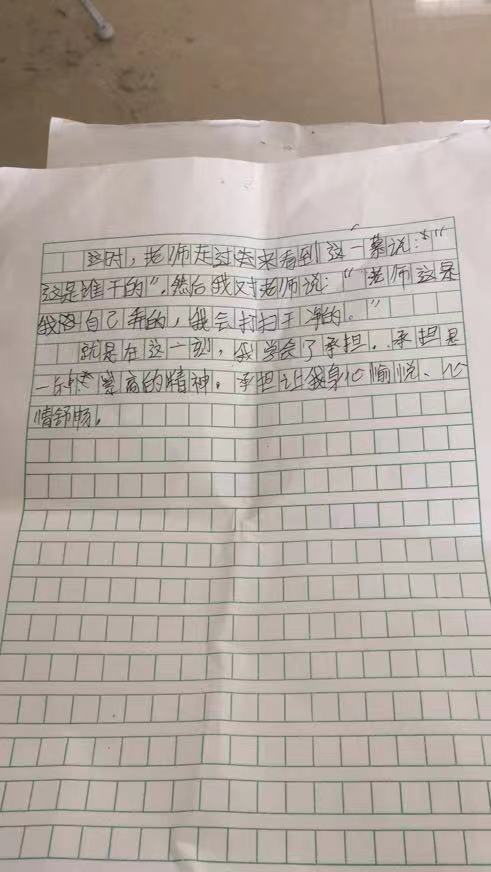 这时，老师走过去来看到这一幕说：“
这是谁干的”，然后我对老师说：“老师这是
我自己弄的，我会打扫干净的。”
就是在这一刻，我学会了承担，承担是
一种崇高的精神。承担让我身心愉悦、心
情舒畅。